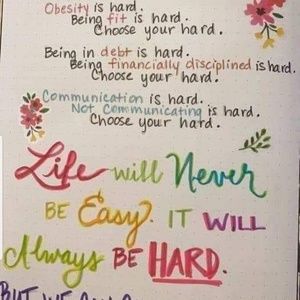 Obesity is hard.
Being fit is hard.
Choose your hard.
Being in debt is hard.
Being financially disciplined is hard.
Choose your hard.
Communication is hard.
Not Communicating is hard.
Choose your hard.
Life will Never
BE Easy. IT WILL
Always BE HARD.
BUT WE CAN